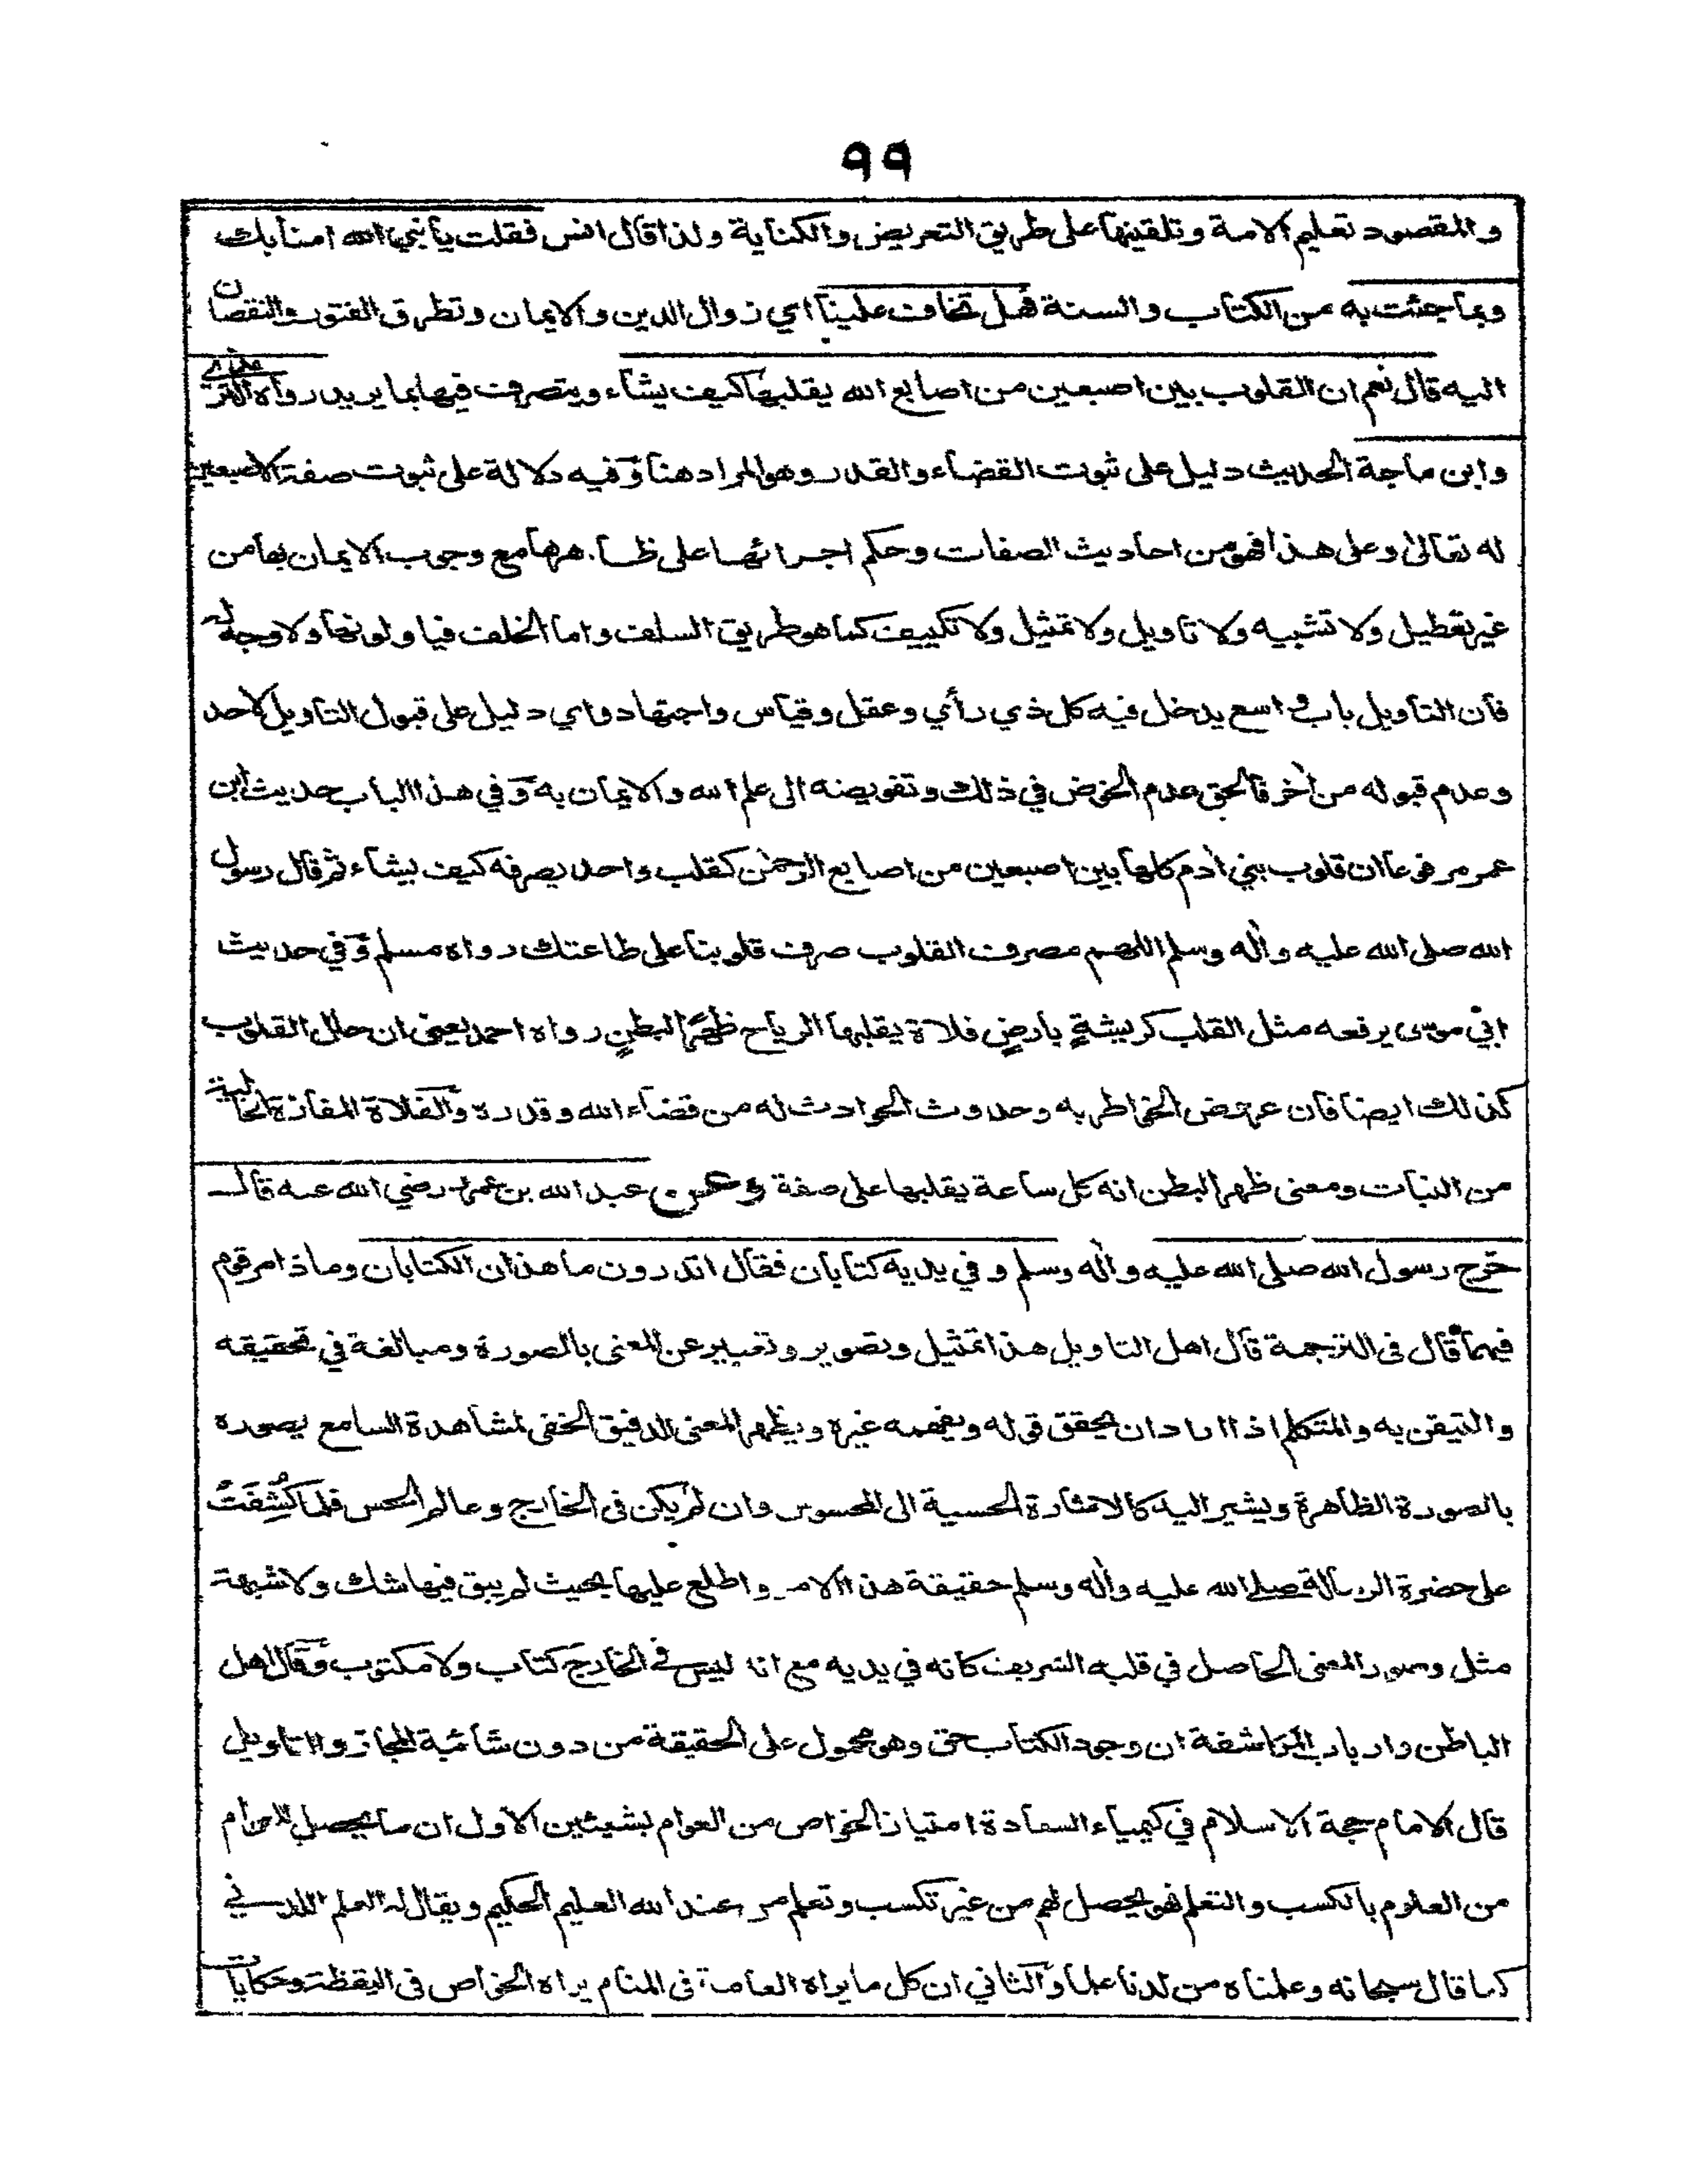 ٩٩
والمقصود تعليم الامة وتلقينها على طريق التعريض والكناية ولذا قال انس فقلت يا نبي الله امنا بك
وبما جئت به من الكتاب والسنة فهل تخاف علينا اي زوال الدين والايمان وتطرق الفتور والنقصان
اليه قال نعم ان القلوب بين اصبعين من اصابع الله يقلبها كيف يشاء ويتصرف فيها بما يريد رواه الترمذي
وابن ماجة الحديث دليل على ثبوت القضاء والقدر وهو المراد هنا وفيه دلالة على ثبوت صفة الاصبعين
له تعالى وعلى هذا فهو من احاديث الصفات وحكم اجرائها على ظاهرها مع وجوب الايمان بها من
غير تعطيل ولا تشبيه ولا تاويل ولا تمثيل ولا تكييف كما هو طريق السلف واما الخلف فيا ولونها ولا وجه له
فان التاويل باب واسع يدخل فيه كل ذي رأي وعقل وقياس واجتهاد واي دليل على قبول التاويل لاحد
وعدم قبوله من اخر فالحق عدم الخوض في ذلك وتفويضه الى علم الله والايمان به وفي هذا الباب حديث ابن
عمر مرفوعا ان قلوب بني ادم كلها بين اصبعين من اصابع الرحمن كقلب واحد يصرفه كيف يشاء ثم قال رسول
الله صلى الله عليه واله وسلم اللهم مصرف القلوب صرف قلوبنا على طاعتك رواه مسلم وفي حديث
ابي موسى يرفعه مثل القلب كريشةٍ بارضٍ فلاة يقلبها الرياح ظهرًا لبطنٍ رواه احمد يعني ان حال القلوب
كذلك ايضا فان عروض الخواطر به وحدوث الحوادث له من قضاء الله وقدره والفلاة المفازة الخالية
من النبات ومعنى ظهرا لبطن انه كل ساعة يقلبها على صفة وعن عبد الله بن عمرو رضي الله عنه قال
خرج رسول الله صلى الله عليه واله وسلم وفي يديه كتابان فقال اتدرون ما هذان الكتابان وماذا مرقوم
فيهما قال في الترجمة قال اهل التاويل هذا تمثيل وتصوير وتعبير عن المعنى بالصورة ومبالغة في تحقيقه
والتيقن به والمتكلم اذا اراد ان يحقق قوله ويفهمه غيره ويظهر المعنى الدقيق الخفى لمشاهدة السامع يصوره
بالصورة الظاهرة ويشير اليه كالاشارة الحسية الى المحسوس وان لم يكن في الخارج وعالم الحس فلما كُشِفَتْ
على حضرة الرسالة صلى الله عليه واله وسلم حقيقة هذا الامر واطلع عليها بحيث لم يبق فيها شك ولا شبهة
مثل وصور المعنى الحاصل في قلبه الشريف كانه في يديه مع انه ليس في الخارج كتاب ولا مكتوب وقال اهل
الباطن وارباب المكاشفة ان وجود الكتاب حق وهو محمول على الحقيقة من دون شائبة المجاز والتاويل
قال الامام حجة الاسلام في كيمياء السعادة امتياز الخواص من العوام بشيئين الاول ان ما يحصل للعوام
من العلوم بالكسب والتعلم فهو يحصل لهم من غير تكسب وتعلم من عند الله العليم الحكيم ويقال له العلم اللدني
كما قال سبحانه وعلمناه من لدنا علما والثاني ان كل ما يراه العامة في المنام يراه الخواص في اليقظة وحكايات